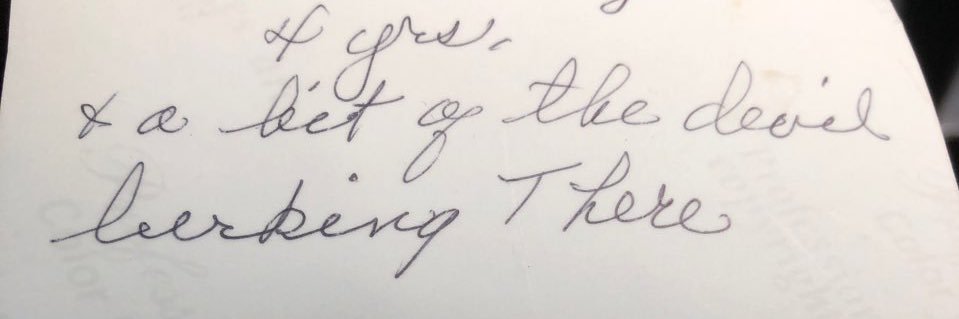 4 yrs.
& a bit of the devil
lurking There